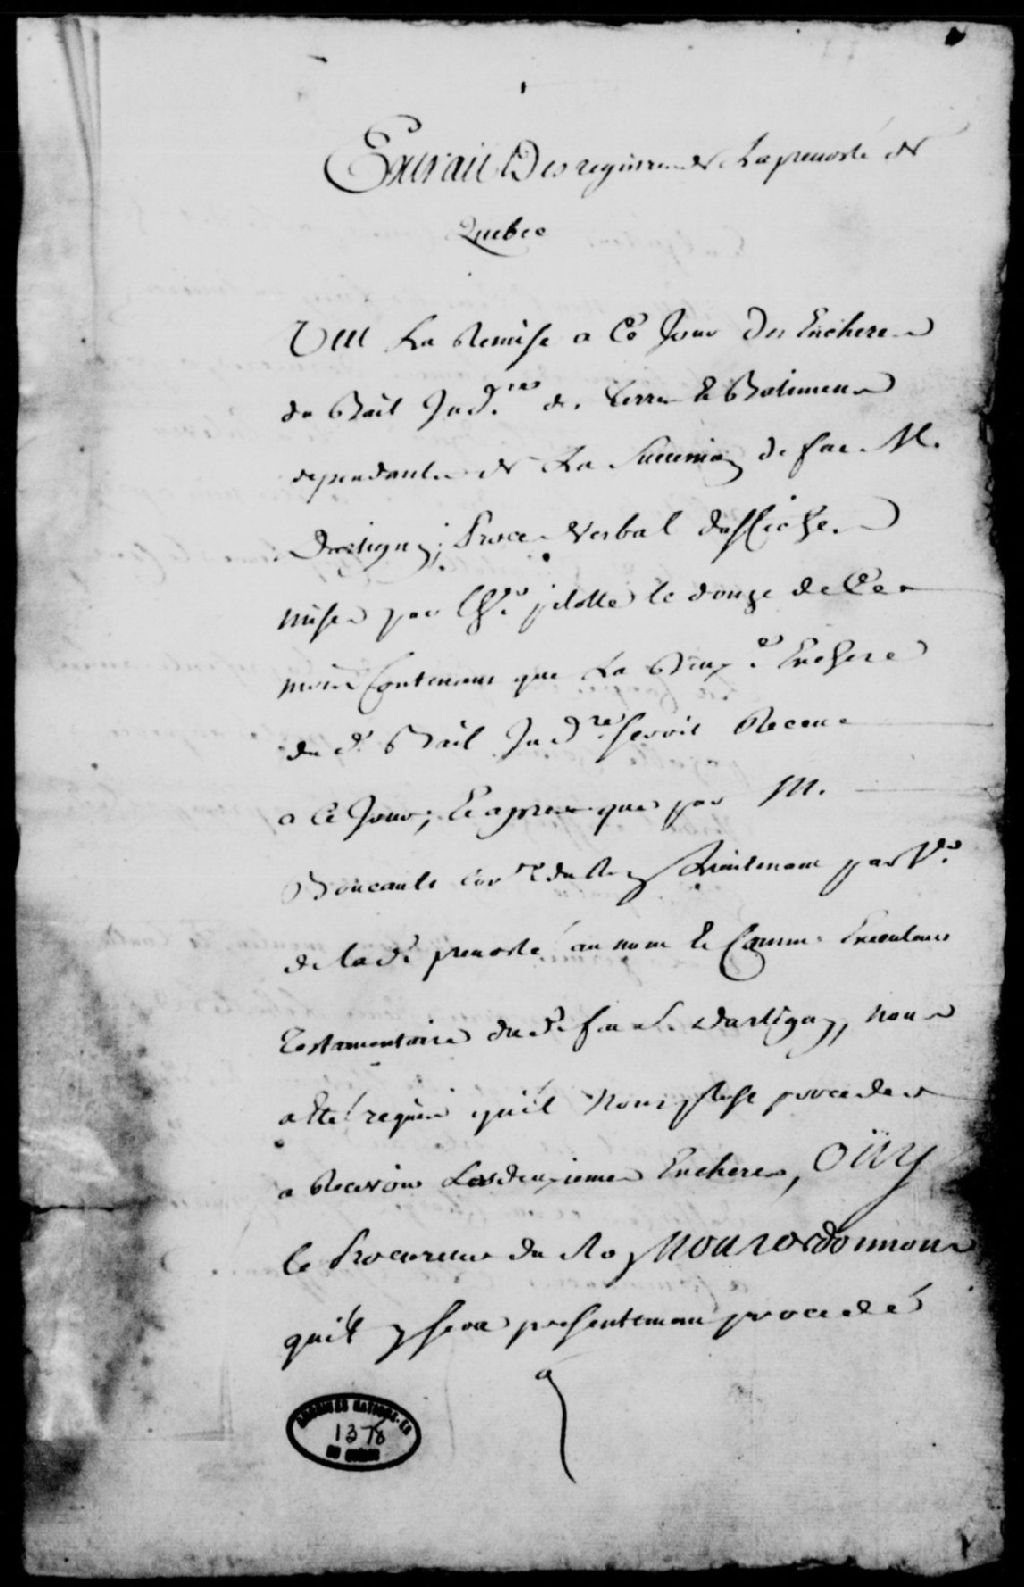 Extrait Des registres de La prevosté de
Quebec
VEU La Remise a Ce Jour Des Encheres
du Bail Jud.re des terres Et Batimens
dependantes de La Succession de feu M.
Dartigny; Proces Verbal daffiches
mises par lhr. pilotte le douze de Ce
mois Contenans que La deux.e Enchere
du d. Bail Jud.re seroit Receue
a Ce Jour, Et apres que par M.
Boucault Con.er du Roy Lieutenant part.er
de lad. prevosté au nom Et Comme Executeur
testamentaire dud. feu S. Dartigny, nous
a Eté requis quil Nous plaise proceder
a Recevoir Les deuxieme Encheres, OÜY
le Procureur du Roy NOUS ordonnons
quil y sera presentement procedé
a
ARCHIVES NATIONALES
1378
DU QUEBEC